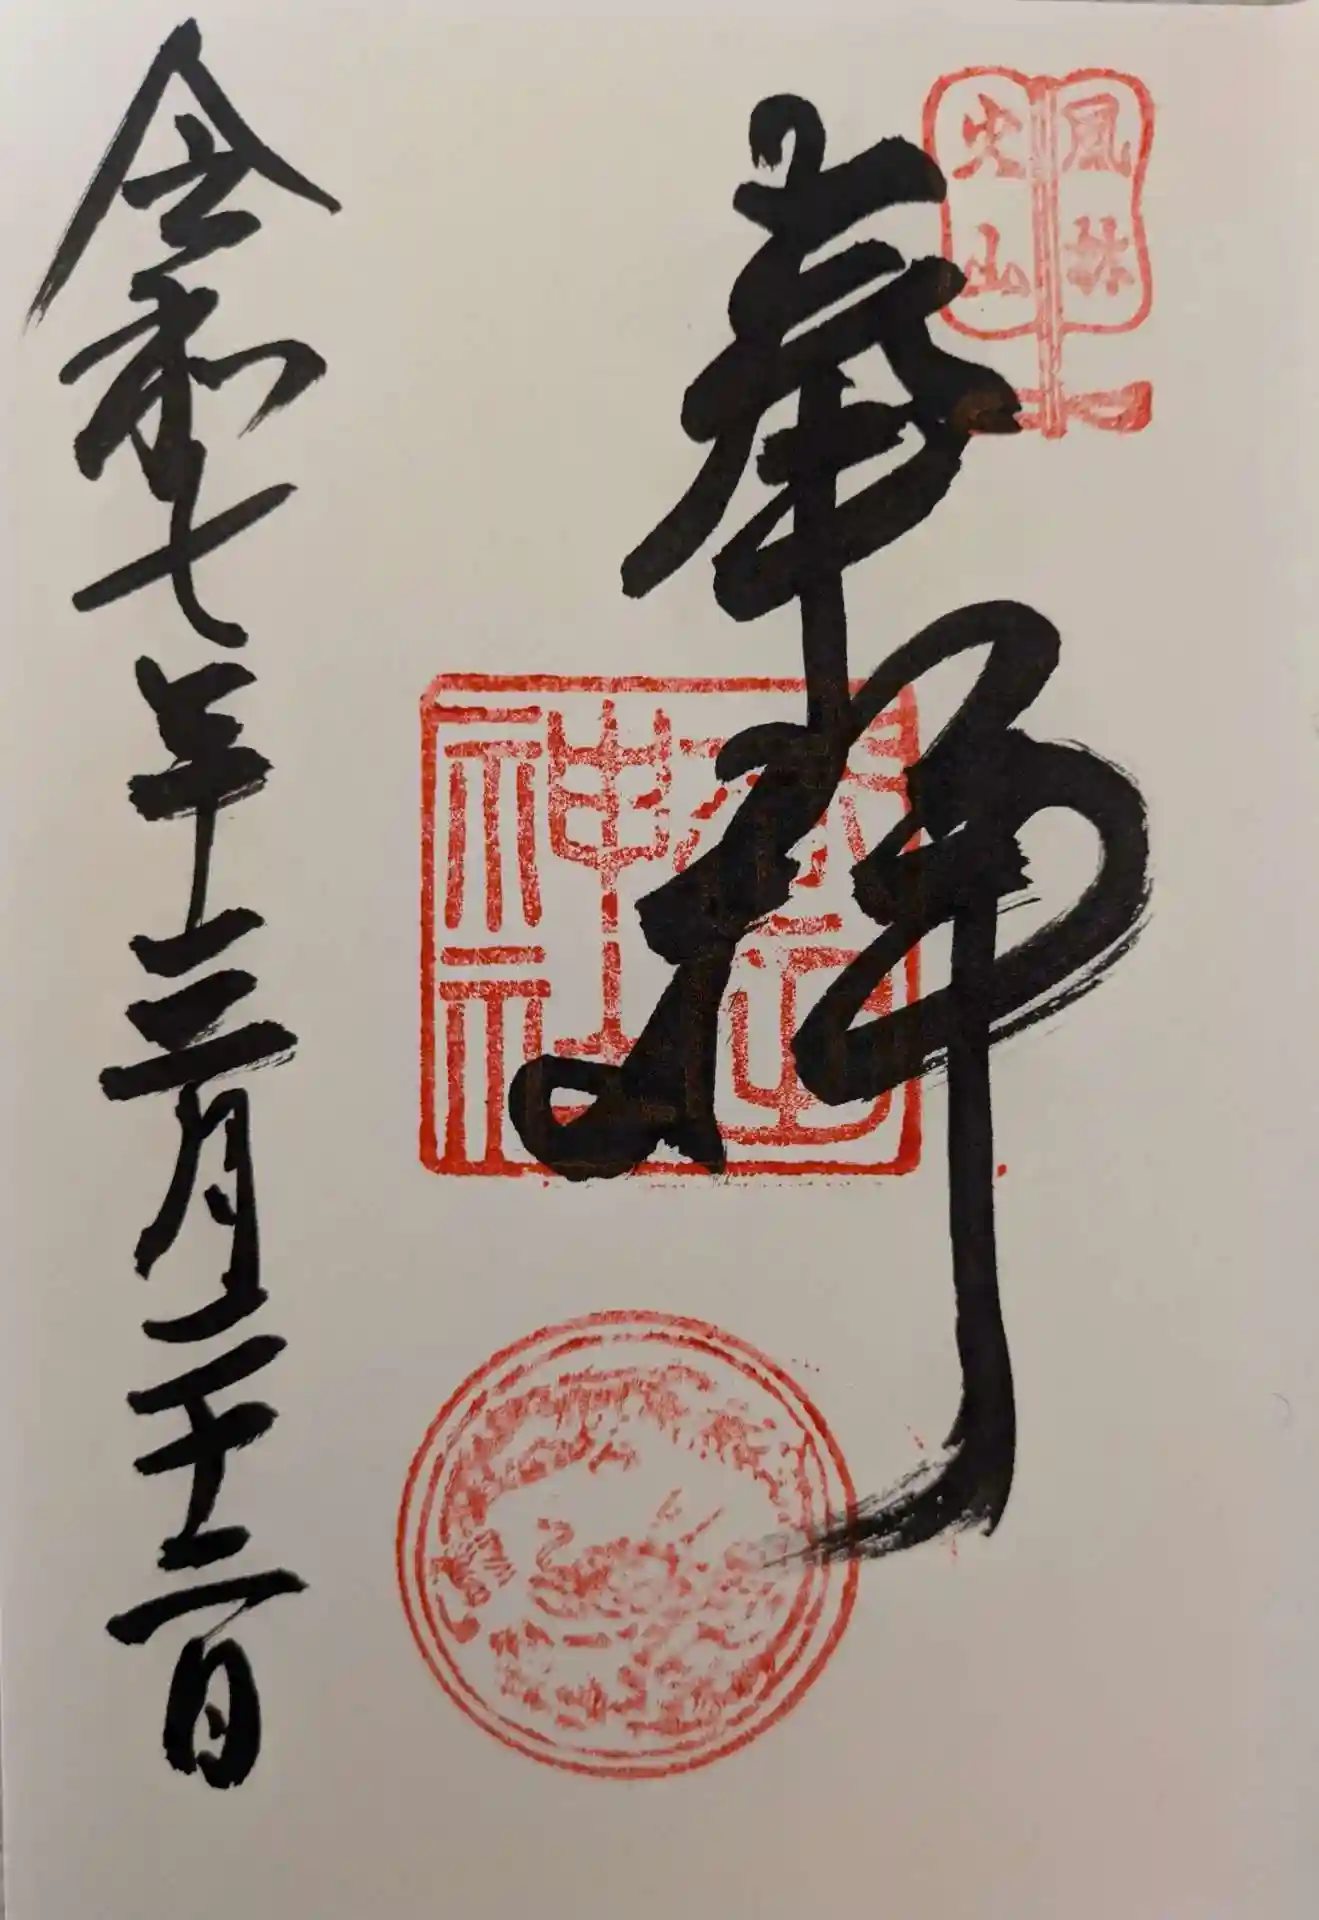 風林
火山
奉拝
武田
神社
令和七年三月二十二日